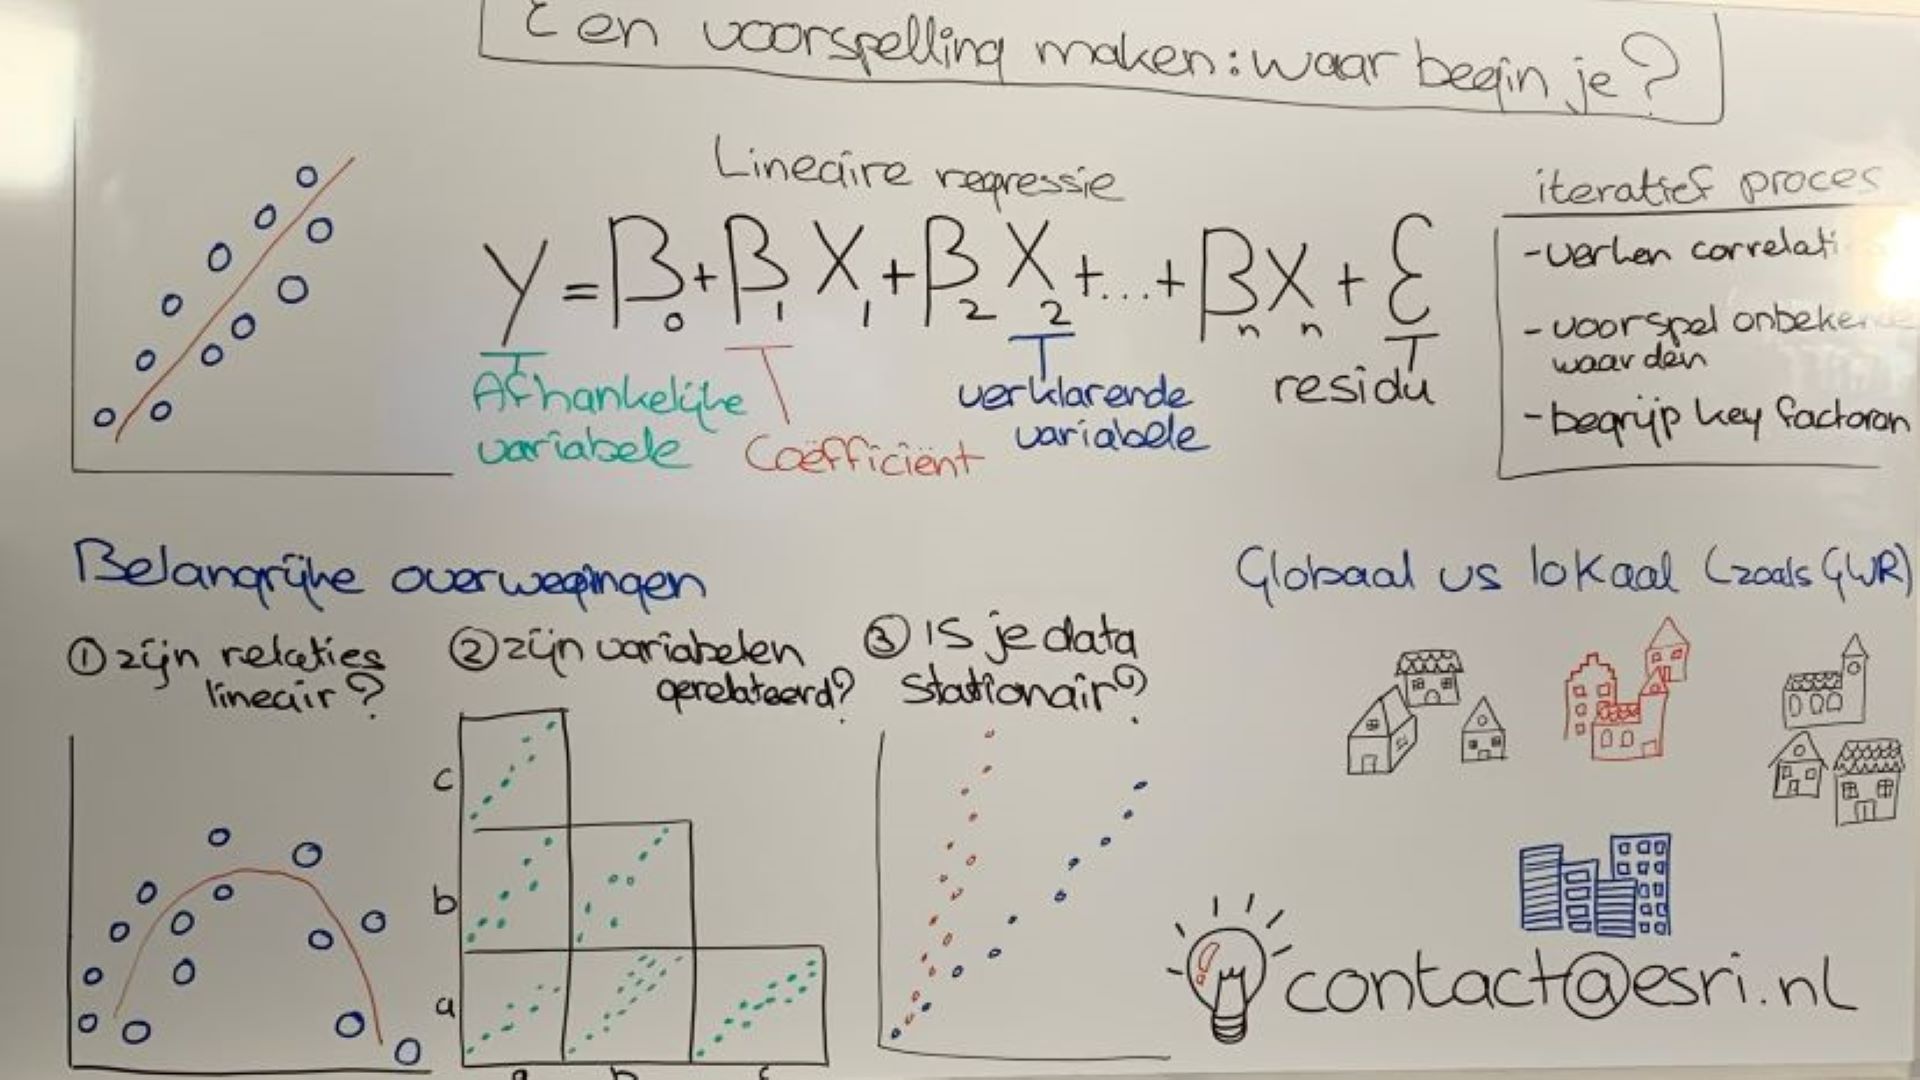 Een voorspelling maken: waar begin je?
Lineaire regressie
Y = β0 + β1 X1 + β2 X2 + ... + βn Xn + ε
Afhankelijke
variabele
Coëfficiënt
verklarende
variabele
residu
iteratief proces
- verken correlati
- voorspel onbekende
waarden
- begrijp key factoren
Belangrijke overwegingen
① zijn relaties
lineair?
② zijn variabelen
gerelateerd?
③ Is je data
stationair?
c
b
a
a b c
Globaal vs lokaal (zoals GWR)
contact@esri.nl